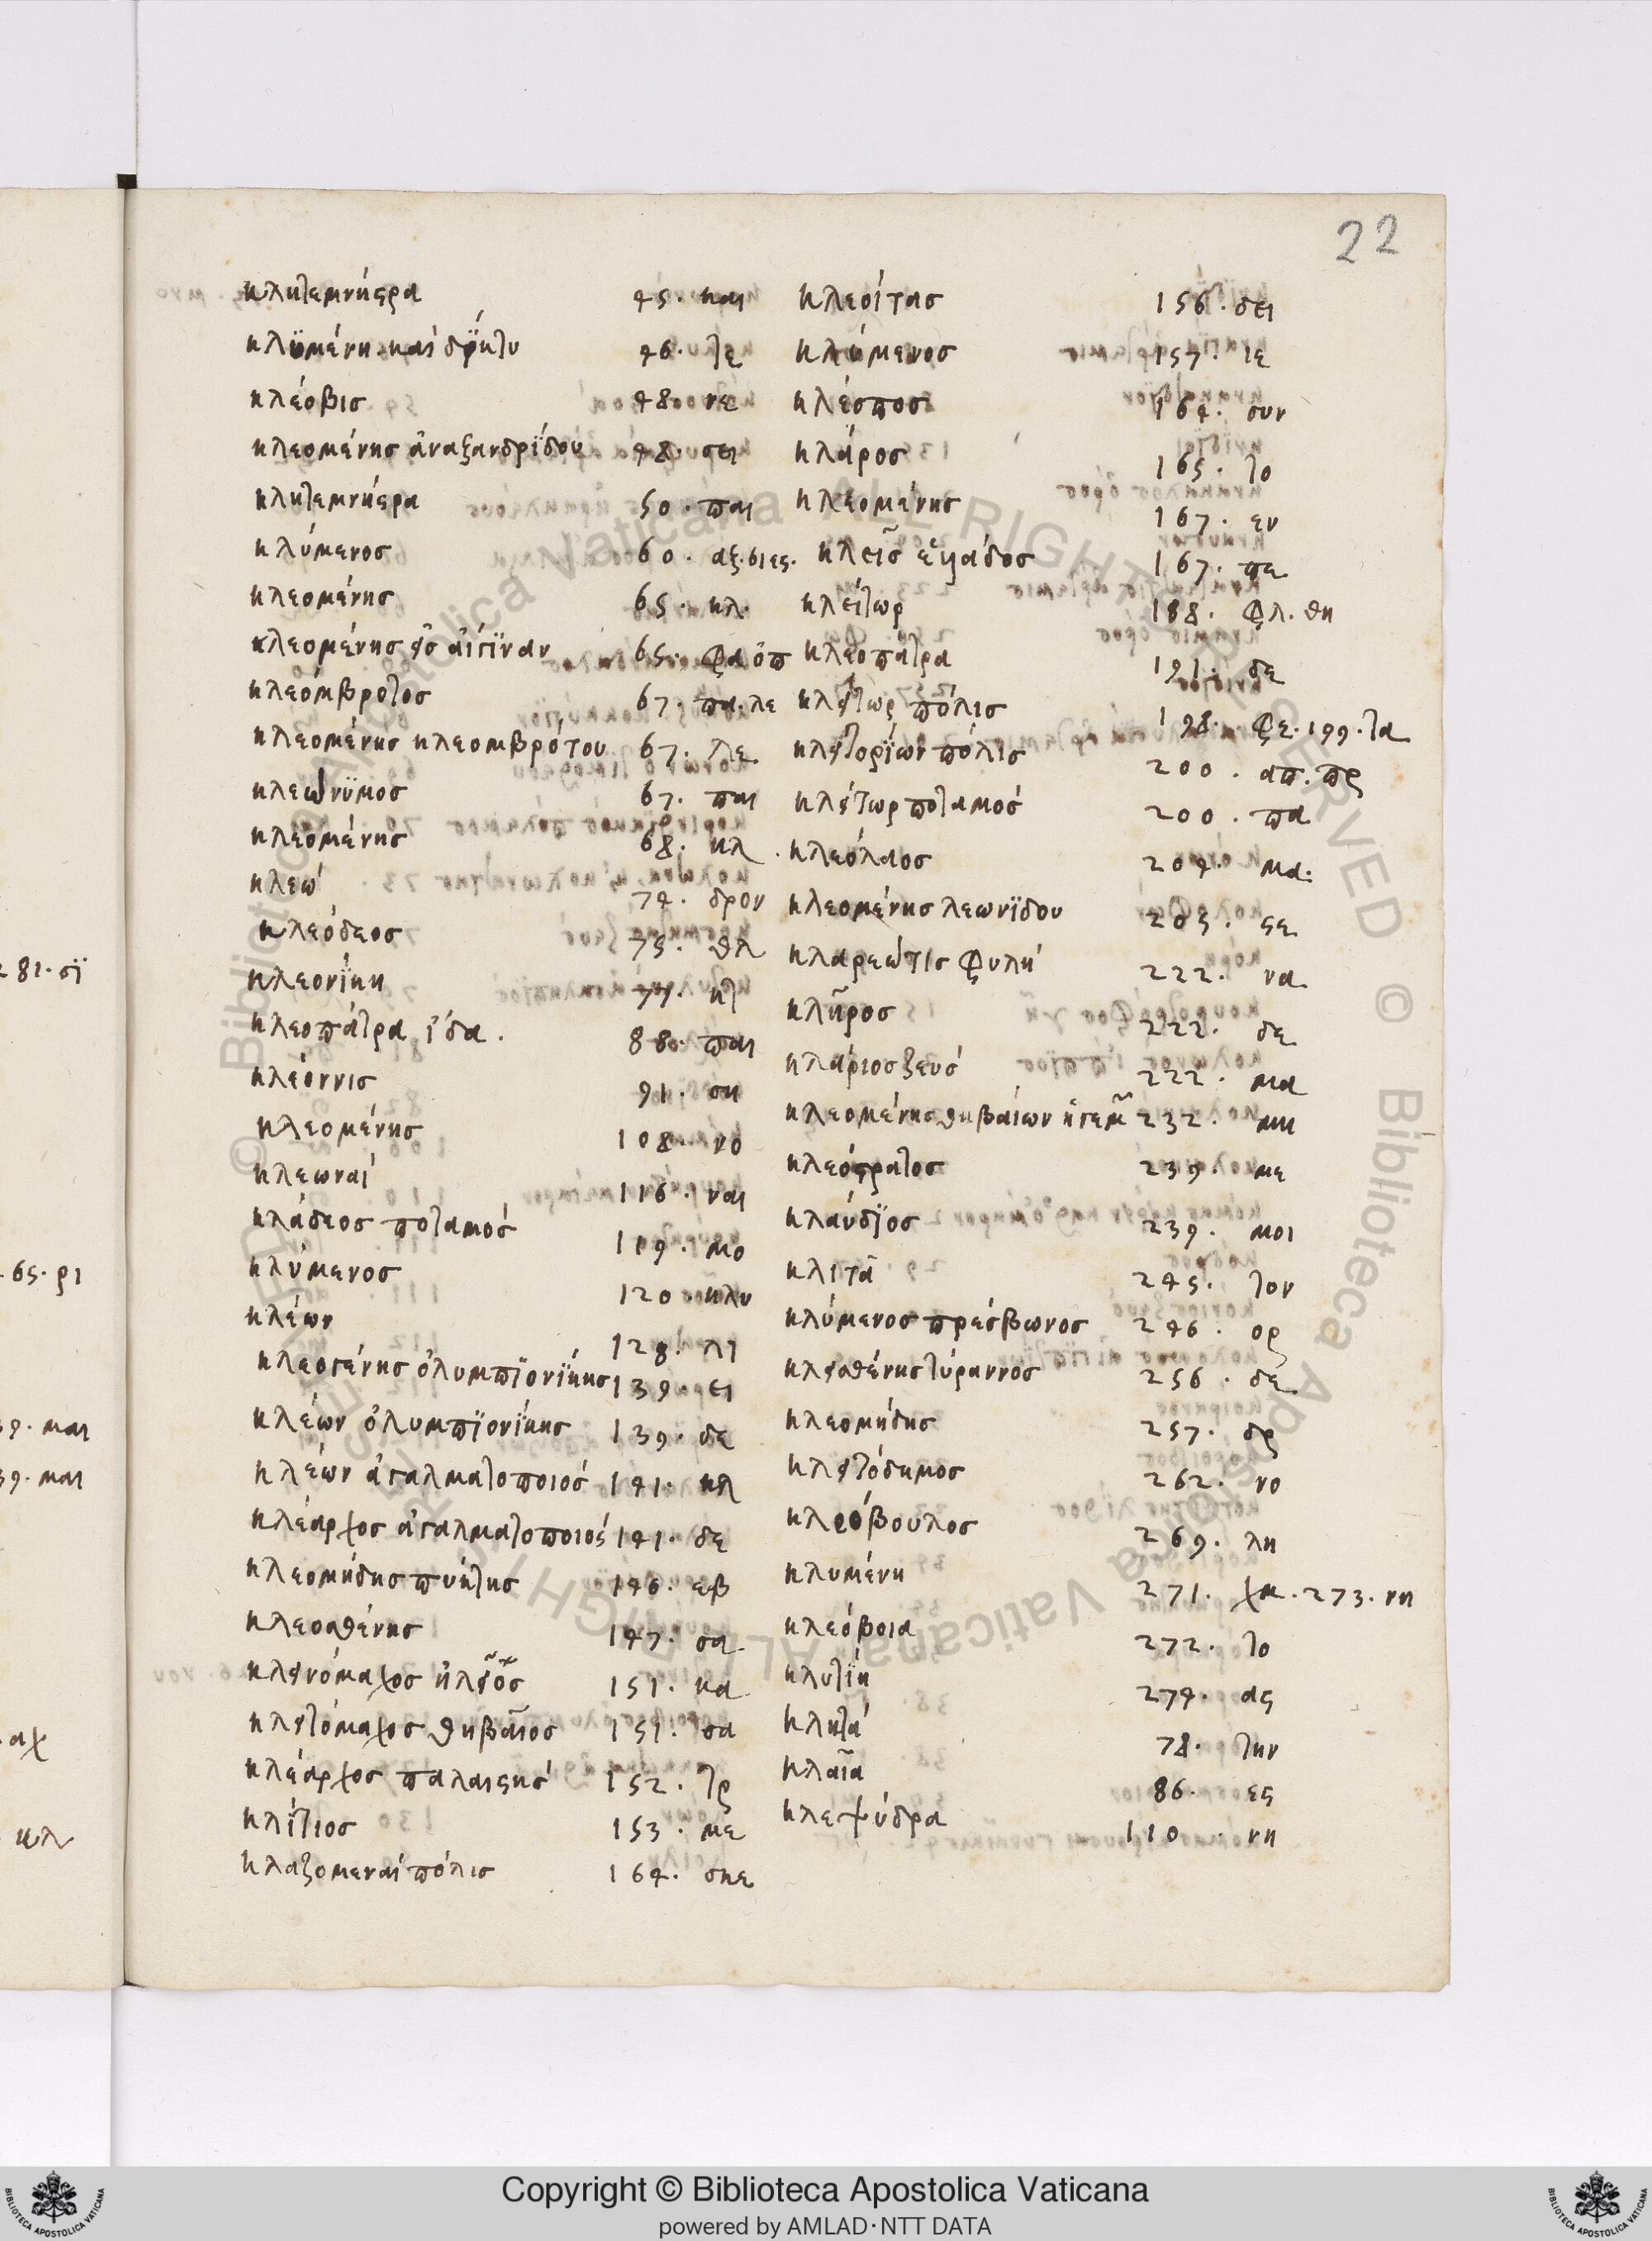 22
κλυταιμνήστρα 45. και
κλυμένη καὶ δίκτυ 46. τε
κλέοβις 48. νε
κλεομένης ἀναξανδρίδου 48. σει
κλυταιμνήστρα 50. παι
κλύμενος 60.
κλεομένης 65. κλ.
κλεομένης ἐς αἴγιναν 65. φα
κλεόμβροτος 67. πα. λε
κλεομένης κλεομβρότου 67. λε
κλεώνϋμος 67. παι
κλεομένης 68. κλ
κλεώ 74. δρον
κλεόδεος 75. θλ
κλεονίκη 77. κτ
κλεοπάτρα ἴδα. 88. παι
κλέοννις 91. ση
κλεομένης 108. νο
κλεωναί 116. ναι
κλάδεος ποταμός 119. μο
κλύμενος 120. κλυ
κλέων 128. λι
κλεογένης ὀλυμπϊονίκης 139. ει
κλέων ὀλυμπϊονίκης 139. δε
κλέων ἀγαλματοποιός 141. κλ
κλέαρχος ἀγαλματοποιός 141. δε
κλεομήδης πύκτης 146. εβ
κλεοσθένης 147. σα
κλεινόμαχος ἠλεῖος 151. κα
κλειτόμαχος θηβαῖος 151. σα
κλέαρχος παλαιστής 152. τρ
κλίτιος 153. με
κλαζομεναί πόλις 164. σκε
κλεοίτας 156. δει
κλύμενος 157. τε
κλέσπος 164. συν
κλάρος 165. το
κλεομένης 167. εν
κλεὶς ἑλλάδος 167. πε
κλείτωρ 188. φλ. θη
κλεοπάτρα 191. δε
κλείτωρ πόλις 198. φε. 199. τα
κλειτορίων πόλις 200. απ. πρ
κλείτωρ ποταμός 200. πα
κλεόλαος 204. μα:
κλεομένης λεωνϊδου 205. σε
κλαρεώτις φυλή 222. να
κλῆρος 222. δε
κλάριος ζευς 222. μα
κλεομένης θηβαίων ἡγεμ 232. μη
κλεόστρατος 239. με
κλαύδϊος 239. μοι
κλιτὰ 245. τον
κλύμενος πρέσβωνος 246. ορ
κλεισθένης τύραννος 256. δε
κλεομήδης 257. δρ
κλειτόδημος 262. νο
κλεόβουλος 269. λη
κλυμένη 271. χα. 273. νη
κλεόβοια 272. το
κλυτίη 274. ας
κλητά 78. την
κλαῖα 86. ες
κλεψύδρα 110. νη
281. σϊ
65. ρι
39. μαι
39. μαι
αχ
κλ
Copyright © Biblioteca Apostolica Vaticana
powered by AMLAD·NTT DATA